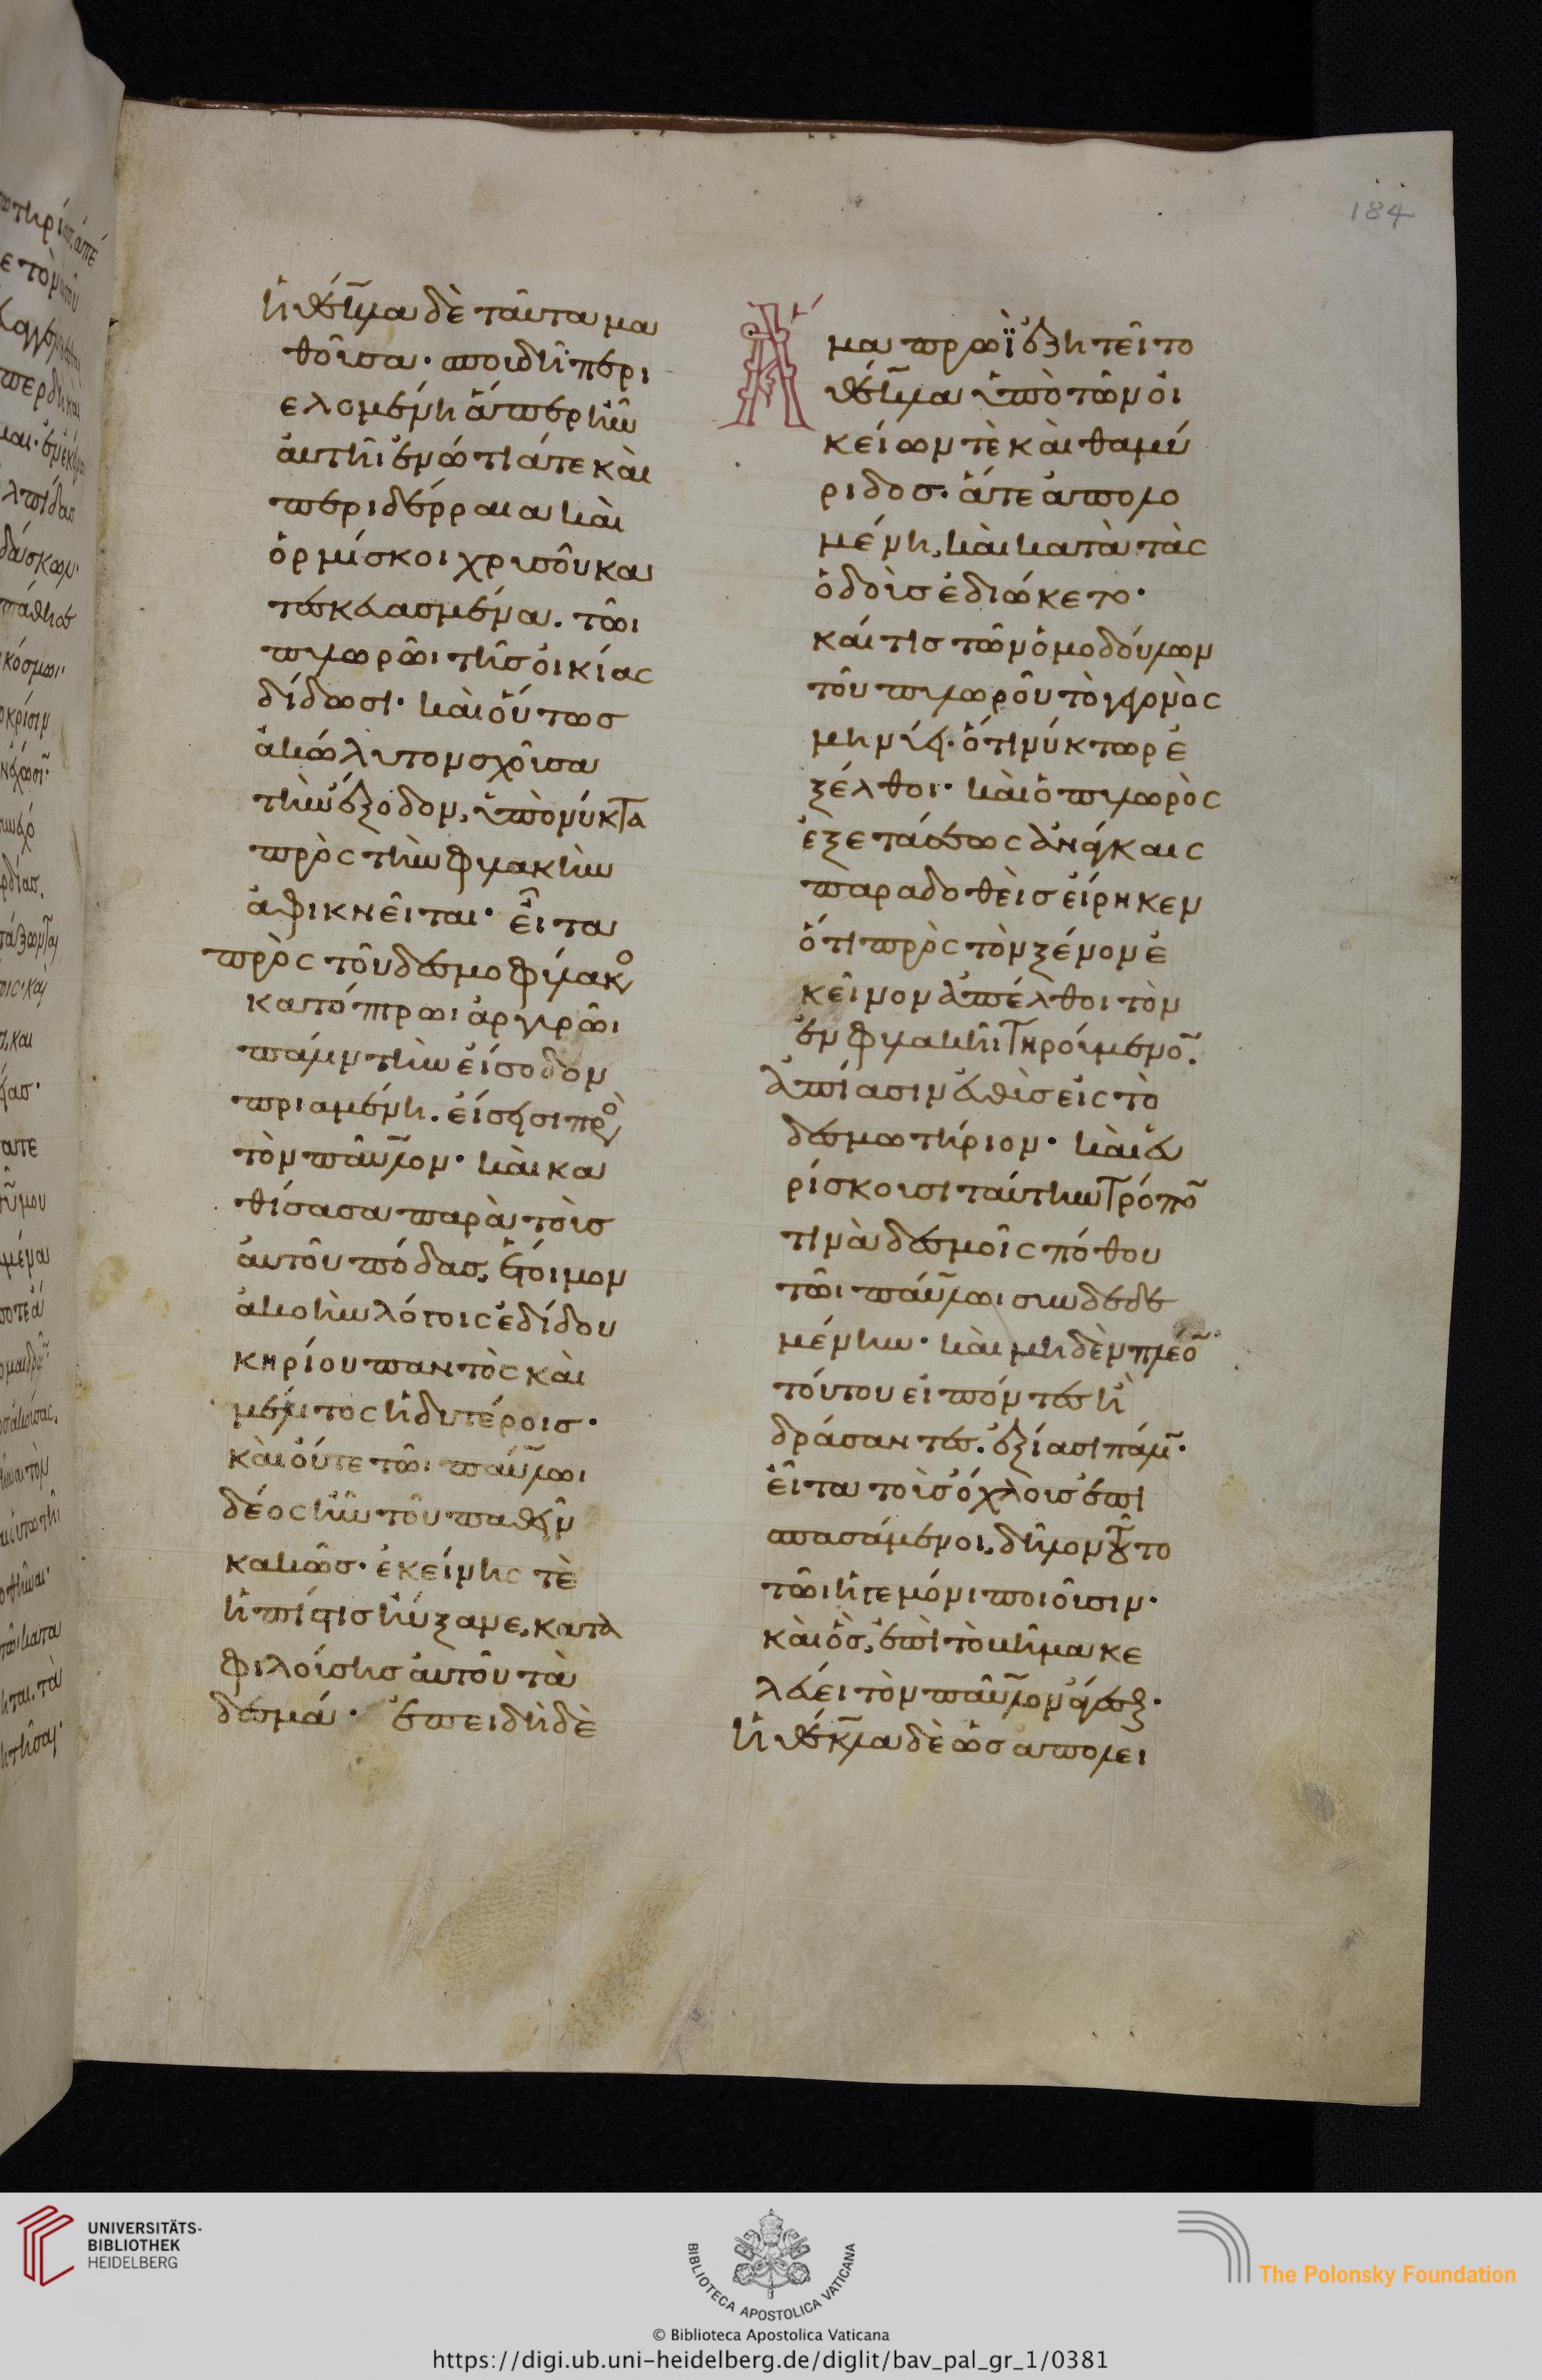 ἡ θέκλα δὲ ταῦτα μα
θοῦσα· σπουδῆι περι
ελομένη ἅπερ ἦν
αὐτῆι ἐνώτιά τε καὶ
περιδέρραια καὶ
ὁρμίσκοι χρυσοῦ κα
τεσκευασμένα. τῶι
πυλωρῶι τῆς οἰκίας
δίδωσι· καὶ οὕτως
ἀκώλυτον σχοῦσα
τὴν ἔξοδον, ὑπὸ νύκτα
πρὸς τὴν φυλακὴν
ἀφικνεῖται· εἶτα
πρὸς τοῦ δεσμοφύλακο
κατόπτρωι ἀργυρῶι
πάλιν τὴν εἴσοδον
πριαμένη. εἴσεισι πρὸ
τὸν παῦλον· καὶ κα
θίσασα παρὰ τοὺς
αὐτοῦ πόδας, ἕτοιμον
ἀκοὴν λόγοις ἐδίδου
κηρίου παντὸς καὶ
μέλιτος ἡδυτέροις·
καὶ οὔτε τῶι παύλωι
δέος ἦν τοῦ παθεῖν
κακῶς· ἐκείνης τὲ
ἡ πίστις ηὔξανε, κατα
φιλούσης αὐτοῦ τὰ
δεσμά· ἐπειδὴ δὲ
184
Ἅμα πρωῒ ἐζητεῖτο
θέκλα ὑπὸ τῶν οἰ
κείων τὲ καὶ θαμύ
ριδος. ἅτε ἀπολο
μένη, καὶ κατὰ τὰς
ὁδοὺς ἐδιώκετο·
καί τις τῶν ὁμοδούλων
τοῦ πυλωροῦ τὸ γεγονὸς
μηνύει· ὅτι νύκτωρ ἐ
ξέλθοι· καὶ ὁ πυλωρὸς
ἐξετάσεως ἀνάγκαις
παραδοθεὶς εἴρηκεν
ὅτι πρὸς τὸν ξένον ἐ
κεῖνον ἀπέλθοι τὸν
ἐν φυλακῆι τηρούμενο̄.
ἀπίασιν εὐθὺς εἰς τὸ
δεσμωτήριον· καὶ εὑ
ρίσκουσι ταύτην τρόπο̄
τινὰ δεσμοῖς πόθου
τῶι παύλωι συνδεδε
μένην· καὶ μηδὲν πλέο̄
τούτου εἰπόντες ἢ
δράσαντες. ἐξίασι πάλιν·
εἶτα τοὺς ὄχλους ἐπι
σπασάμενοι, δῆλον τοῦτο
τῶι ἡγεμόνι ποιοῦσιν·
καὶ ὃς, ἐπὶ τὸ βῆμα κε
λεύει τὸν παῦλον ἄγεσθαι·
ἡ θέκλα δὲ ὡς ἀπολει
UNIVERSITÄTS-
BIBLIOTHEK
HEIDELBERG
BIBLIOTECA APOSTOLICA VATICANA
The Polonsky Foundation
© Biblioteca Apostolica Vaticana
https://digi.ub.uni-heidelberg.de/diglit/bav_pal_gr_1/0381